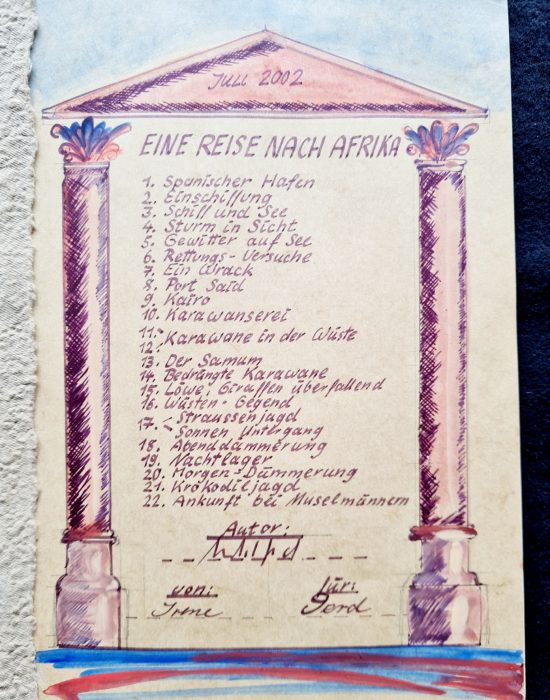 JULI 2002
EINE REISE NACH AFRIKA
1. Spanischer Hafen
2. Einschiffung
3. Schiff und See
4. Sturm in Sicht
5. Gewitter auf See
6. Rettungs-Versuche
7. Ein Wrack
8. Port Said
9. Kairo
10. Karawanserei
11.
12. Karawane in der Wüste
13. Der Samum
14. Bedrängte Karawane
15. Löwe, Giraffen überfallend
16. Wüsten-Gegend
17. < Straussenjagd
Sonnen Untergang
18. Abenddämmerung
19. Nachtlager
20. Morgen=Dämmerung
21. Krokodiljagd
22. Ankunft bei Muselmännern
Autor:
von: für:
Irene Gerd